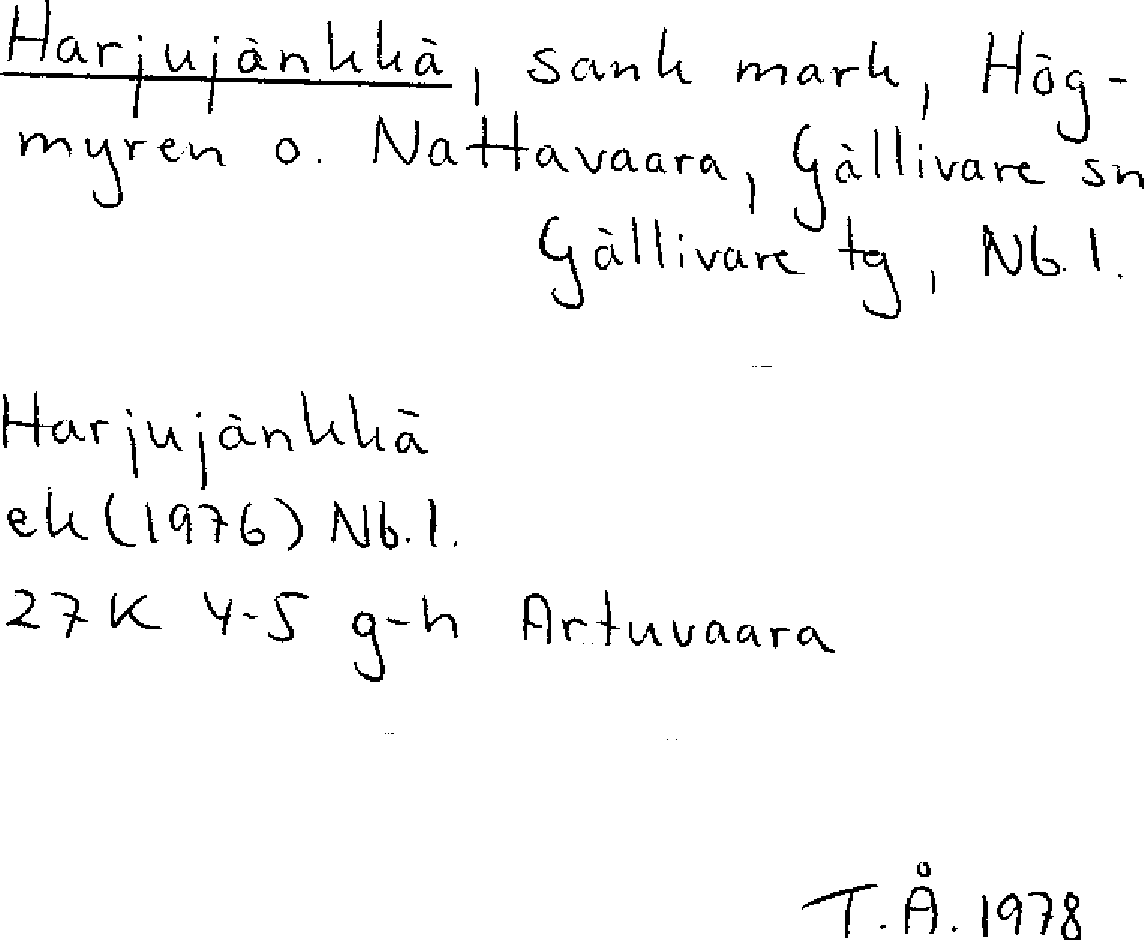 Harjujänkkä, sank mark, Hög-
myren o. Nattavaara, Gällivare sn
Gällivare tg, Nb. l.
Harjujänkkä
ek (1976) Nb. l.
27K 4-5 g-h Artuvaara
T.Å. 1978